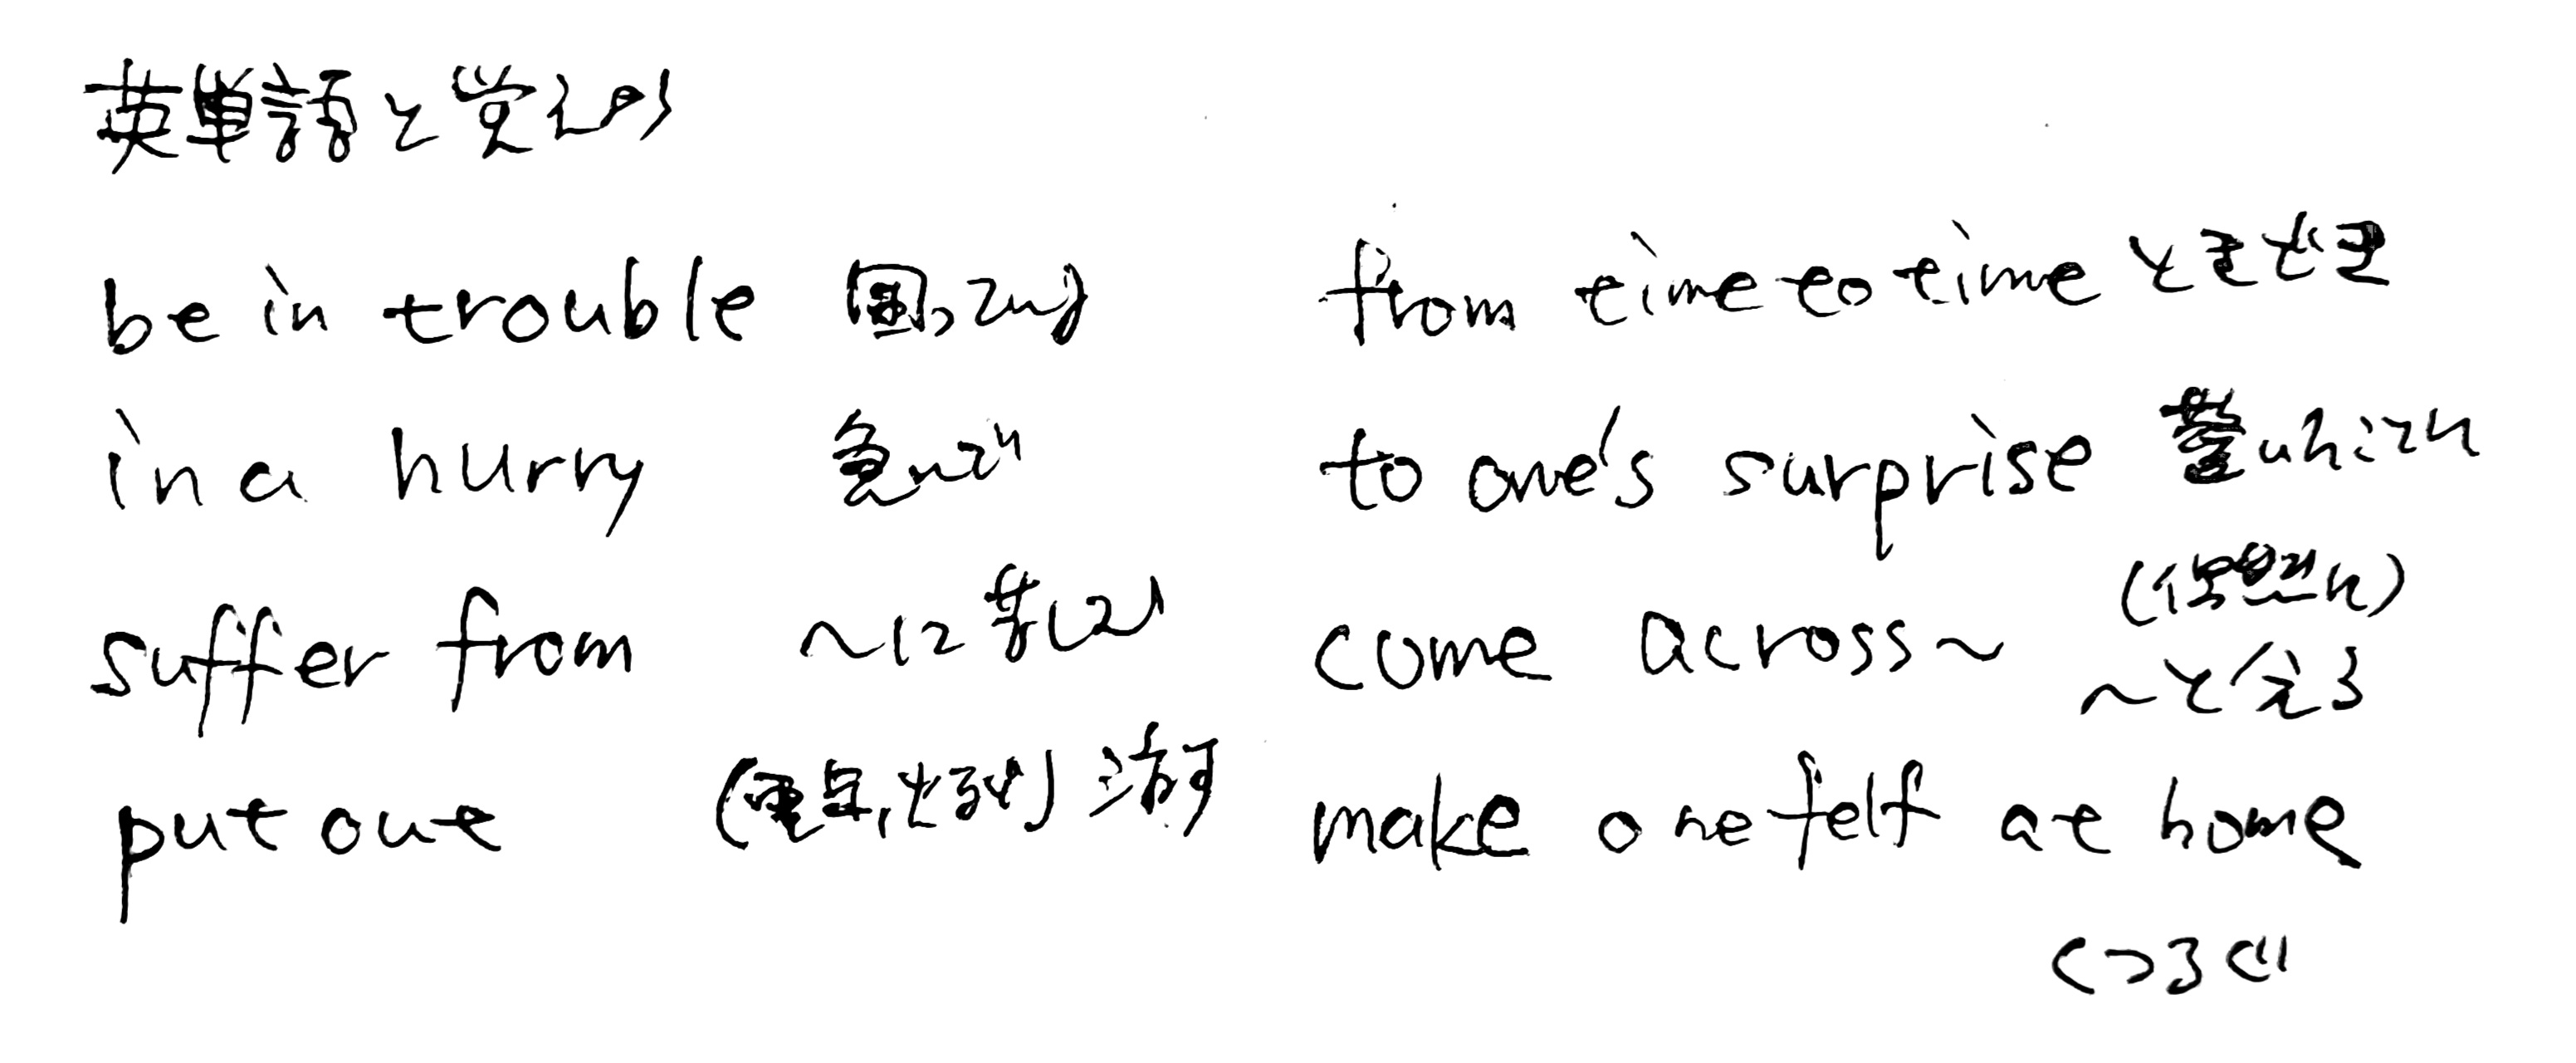 英単語と覚える
be in trouble 困っている
in a hurry 急いで
suffer from ～に苦しむ
put out (電気, 火など) 消す
from time to time ときどき
to one's surprise 驚いたことに
come across～ (偶然に)
～と会う
make onefelf at home
くつろぐ